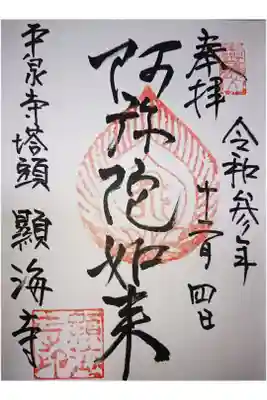 奉拝
令和参年
十二月四日
阿弥陀如来
平泉寺塔頭 顯海寺